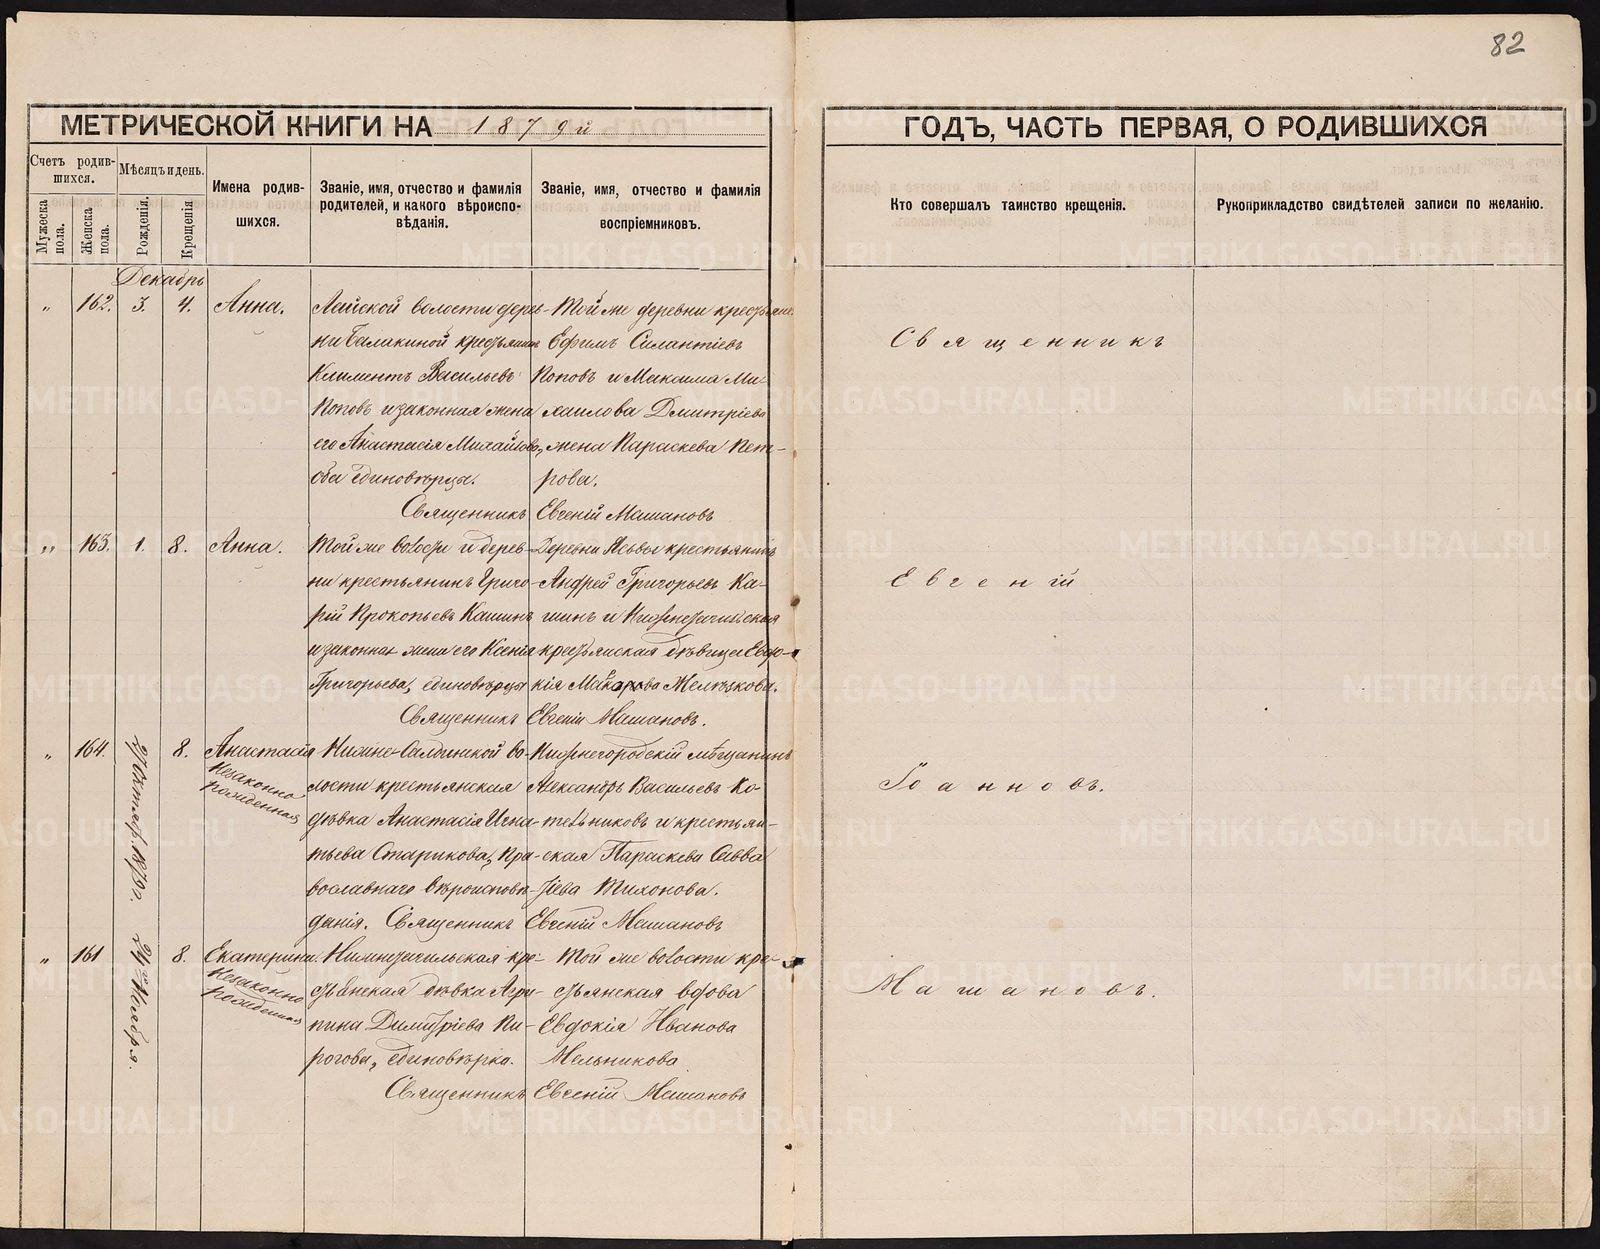 82
МЕТРИЧЕСКОЙ КНИГИ НА 1879й
ГОДЪ, ЧАСТЬ ПЕРВАЯ, О РОДИВШИХСЯ
Счетъ родив-
шихся.
Мужеска пола.
Женска пола.
Мѣсяцъ и день.
Рожденія.
Крещенія
Имена родив-
шихся.
Званіе, имя, отчество и фамилія
родителей, и какого вѣроиспо-
вѣданія.
Званіе, имя, отчество и фамилія
воспріемниковъ.
Кто совершалъ таинство крещенія.
Рукоприкладство свидѣтелей записи по желанію.
Декабрь
„ 162. 3. 4. Анна.
Лайской волости дерев-
ни Балакиной крестьянинъ
Климентъ Васильевъ
Поповъ и законная жена
его Анастасія Михайлова,
оба единовѣрцы.
Той же деревни крестьяне
Ефимъ Силантіевъ
Поповъ и Максима Ми-
хаилова Дмитріева
жена Параскева Пет-
рова.
Священникъ Евгеній Машановъ
„ 163. 1. 8. Анна.
Той же волости и дерев-
ни крестьянинъ Григо-
рій Прокопьевъ Кашинъ
и законная жена его Ксенія
Григорьева, единовѣрцы
Деревни крестьянинъ
Андрей Григорьевъ Ка-
шинъ и Нижнетагильская
крестьянская дѣвица Евдо-
кія Макарова Желѣзкова.
Священникъ Евгеній Машановъ.
„ 164. 27 Октяб. 1879 г. 8. Анастасія
Незаконно
рожденная
Нижне-Салдинской во-
лости крестьянская
дѣвка Анастасія Игна-
тьева Старикова, пра-
вославнаго вѣроисповѣ-
данія.
Нижнегородскій мѣщанинъ
Александръ Васильевъ Ко-
тельниковъ и крестьян-
ская Параскева Савва-
тіева Тихонова.
Священникъ Евгеній Машановъ
„ 161 24го Ноября. 8. Екатерина.
Незаконно
рожденная
Нижнетагильская кре-
стьянская дѣвка Агри-
пина Димитріева Пи-
рогова, единовѣрка.
Той же волости кре-
стьянская вдова
Евдокія Иванова
Мельникова
Священникъ Евгеній Машановъ
Священникъ
Евгеній
Іоанновъ.
Машановъ.
METRIKI.GASO-URAL.RU